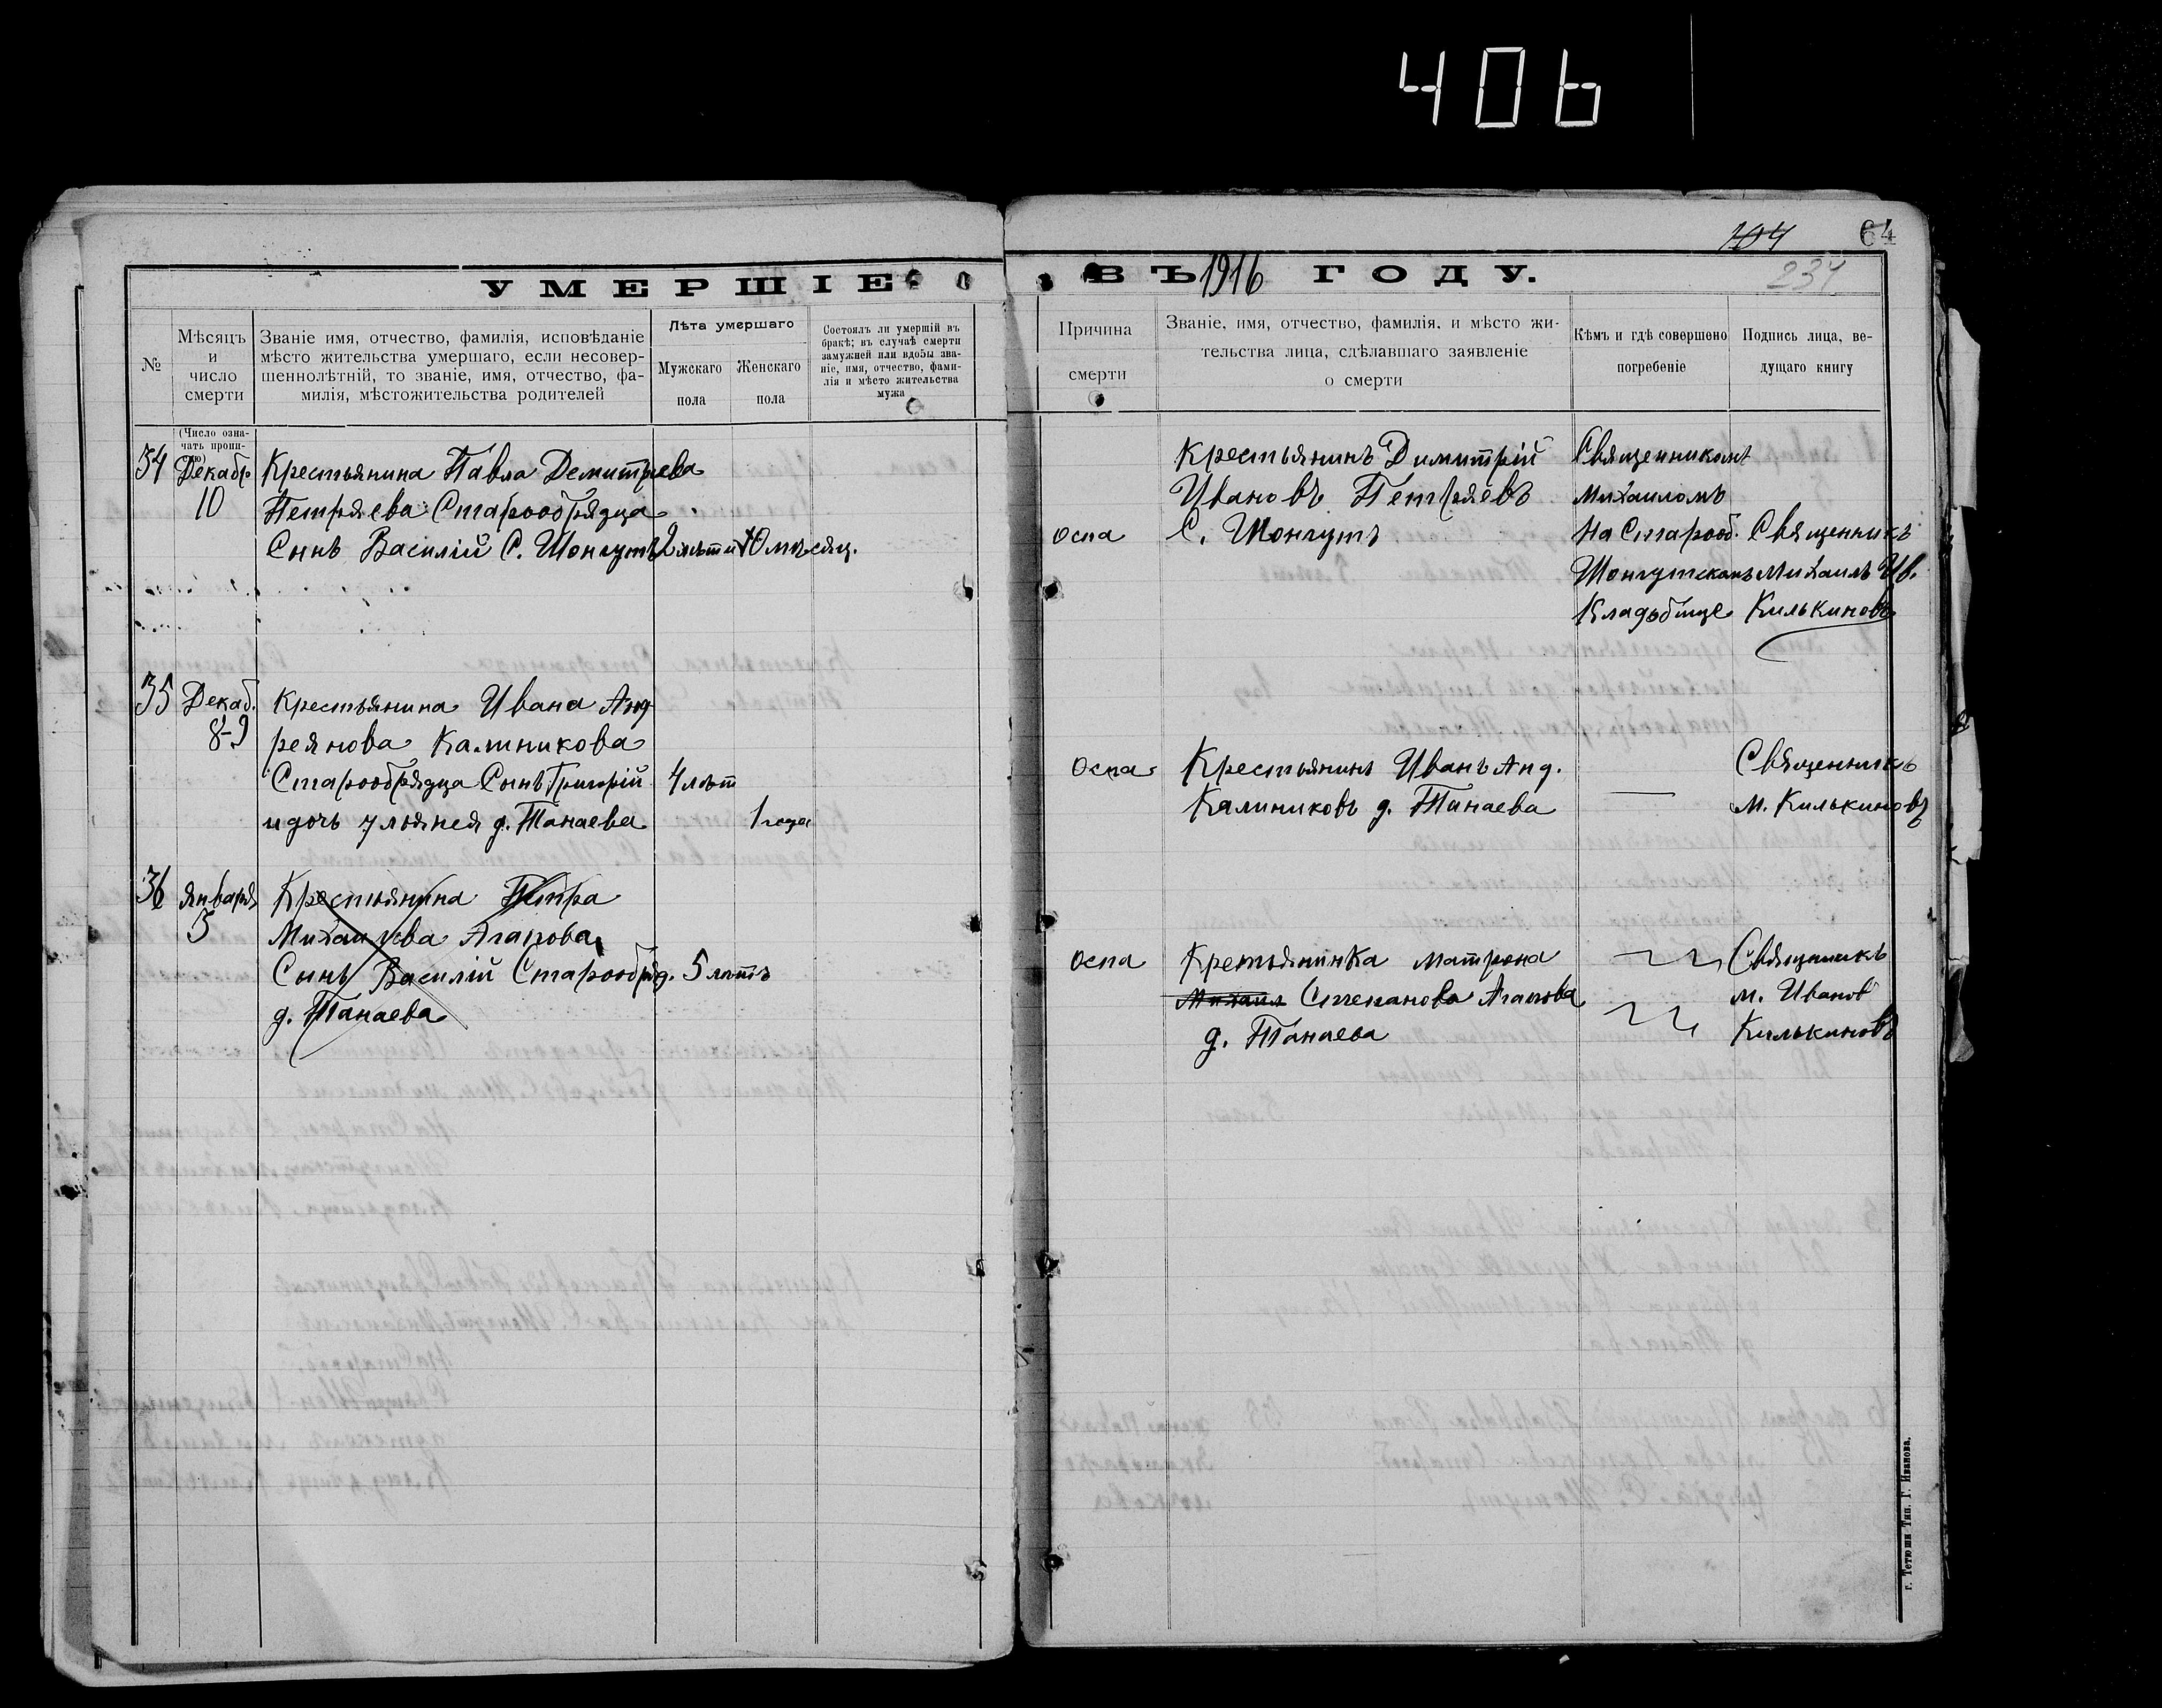 406
104
64
234
УМЕРШІЕ ВЪ 1916 ГОДУ.
№
Мѣсяцъ
и
число
смерти
(Число озна-
чать пропи-
сью)
Званіе имя, отчество, фамилія, исповѣданіе
мѣсто жительства умершаго, если несовер-
шеннолѣтній, то званіе, имя, отчество, фа-
милія, мѣстожительства родителей
Лѣта умершаго
Мужскаго
пола
Женскаго
пола
Состоялъ ли умершій въ
бракѣ; въ случаѣ смерти
замужней или вдовы зва-
ніе, имя, отчество, фами-
лія и мѣсто жительства
мужа
Причина
смерти
Званіе, имя, отчество, фамилія, и мѣсто жи-
тельства лица, сдѣлавшаго заявленіе
о смерти
Кѣмъ и гдѣ совершено
погребеніе
Подпись лица, ве-
дущаго книгу
34
Декабр.
10
Крестьянина Павла Демитрева
Петряева Старообрядца
Сынъ Василій С. Шонгутъ 2 лѣт и 10 мѣсяц.
оспа
Крестьянинъ Димитрій
Ивановъ Петряевъ
С. Шонгутъ
Священникомъ
Михаиломъ
На Старооб.
Шонгутскомъ
Кладбище
Священникъ
Михаилъ Ив.
Килькиновъ
35
Декаб.
8-9
Крестьянина Ивана Анд
реянова Калиникова
Старообрядца Сынъ Григорій 4 лѣт
и дочь Улья д. Танаева 1 года
Оспа
Крестьянинъ Иванъ Анд.
Калиниковъ д. Танаева
Священникъ
М. Килькиновъ
36
января
5
Крестьянина Петра
Михаилова Агапова
Сынъ Василій Старообряд. 5 лѣтъ
д. Танаева
оспа
Крестьянинка Матрона
Михаил Степанова Агапова
д. Танаева
Священникъ
М. Иванов
Килькиновъ
г. Тетюши Тип. Г. Иванова.